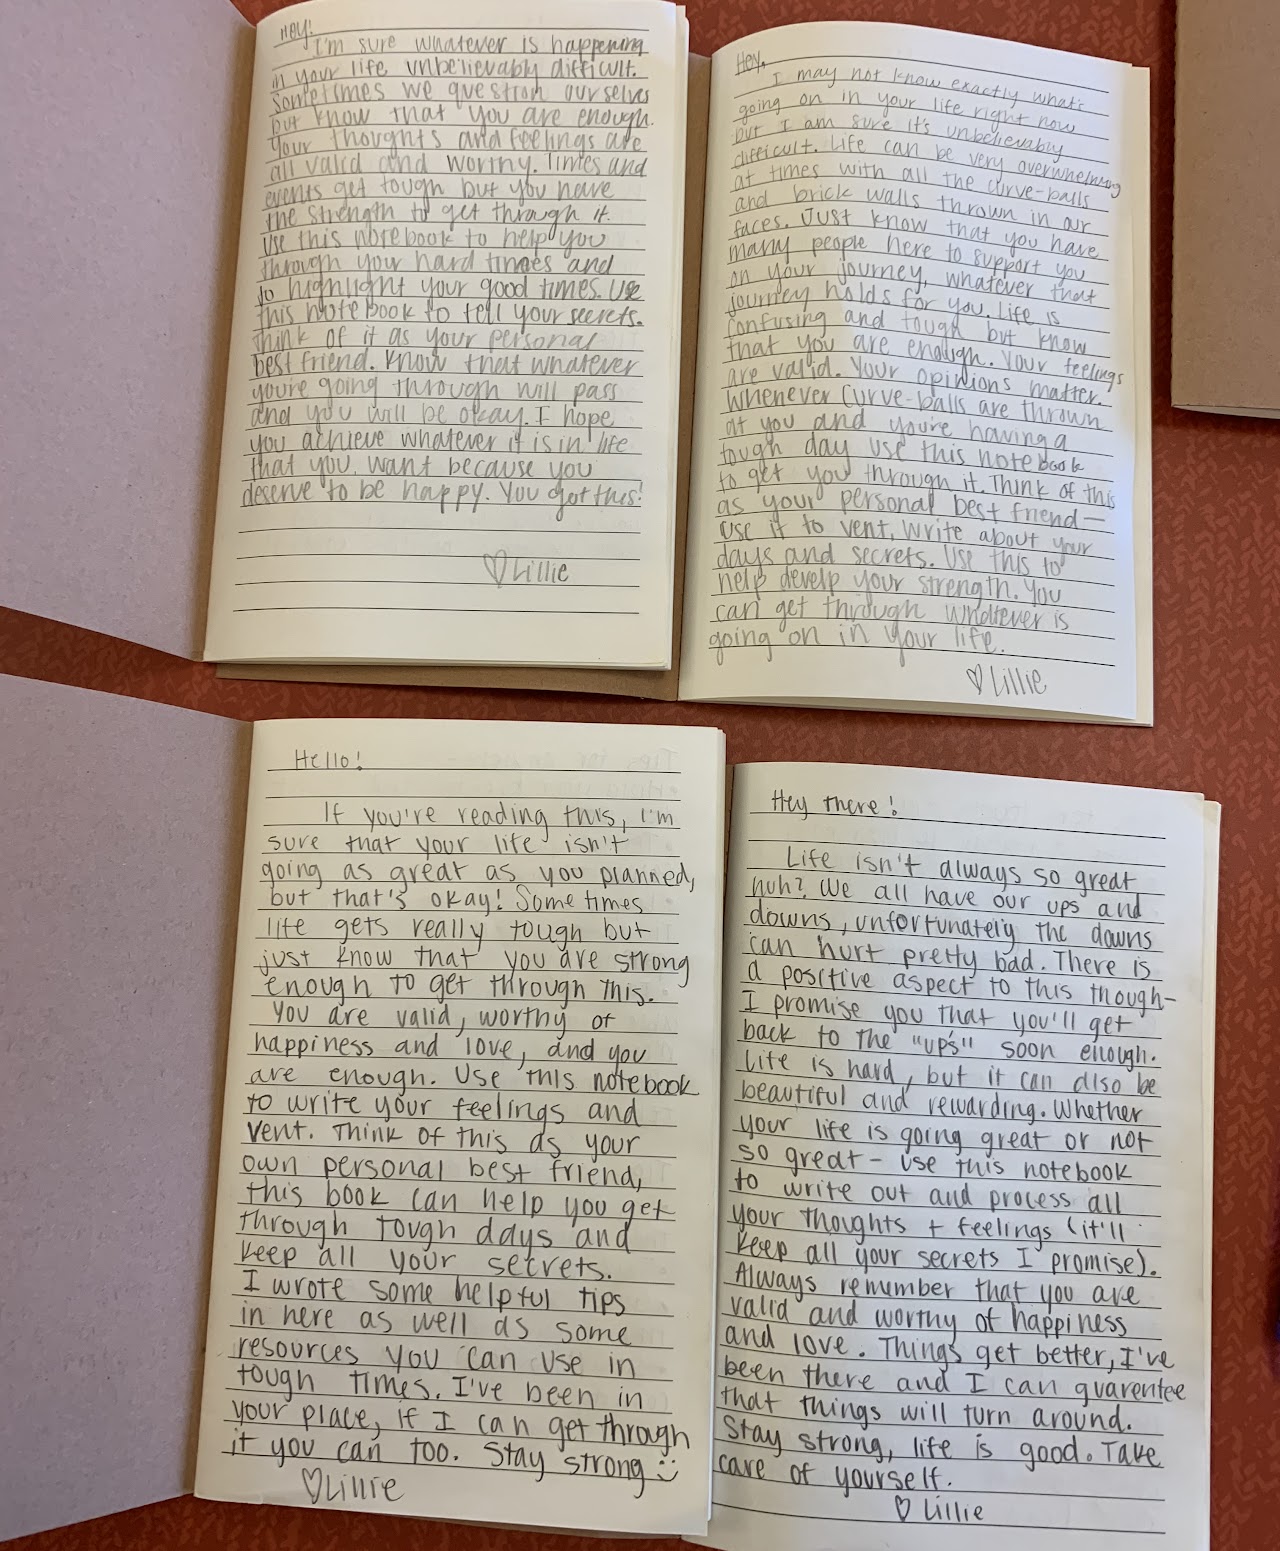 Hey!
I'm sure whatever is happening
in your life unbelievably difficult.
Sometimes we question ourselves
but know that you are enough.
Your thoughts and feelings are
all valid and worthy. Times and
events get tough but you have
the strength to get through it.
Use this notebook to help you
through your hard times and
to highlight your good times. Use
this notebook to tell your secrets.
Think of it as your personal
best friend. Know that whatever
you're going through will pass
and you will be okay. I hope
you achieve whatever it is in life
that you want because you
deserve to be happy. You got this!
♡Lillie
Hey,
I may not know exactly what's
going on in your life right now
but I am sure it's unbelievably
difficult. Life can be very overwhelming
at times with all the curve-balls
and brick walls thrown in our
faces. Just know that you have
many people here to support you
on your journey, whatever that
journey holds for you. Life is
confusing and tough but know
that you are enough. Your feelings
are valid. Your opinions matter.
Whenever curve-balls are thrown
at you and you're having a
tough day use this notebook
to get you through it. Think of this
as your personal best friend—
use it to vent. Write about your
days and secrets. Use this to
help develp your strength. You
can get through whatever is
going on in your life.
♡Lillie
Hello!
If you're reading this, I'm
sure that your life isn't
going as great as you planned,
but that's okay! Some times
life gets really tough but
just know that you are strong
enough to get through this.
You are valid, worthy of
happiness and love, and you
are enough. Use this notebook
to write your feelings and
vent. Think of this as your
own personal best friend,
this book can help you get
through tough days and
keep all your secrets.
I wrote some helpful tips
in here as well as some
resources you can use in
tough times. I've been in
your place, if I can get through
it you can too. Stay strong :)
♡Lillie
Hey there!
Life isn't always so great
huh? We all have our ups and
downs, unfortunately the downs
can hurt pretty bad. There is
a positive aspect to this though—
I promise you that you'll get
back to the "up's" soon enough.
Life is hard, but it can also be
beautiful and rewarding. Whether
your life is going great or not
so great - use this notebook
to write out and process all
your thoughts + feelings (it'll
keep all your secrets I promise).
Always remember that you are
valid and worthy of happiness
and love. Things get better, I've
been there and I can guarentee
that things will turn around.
Stay strong, life is good. Take
care of yourself.
♡ Lillie